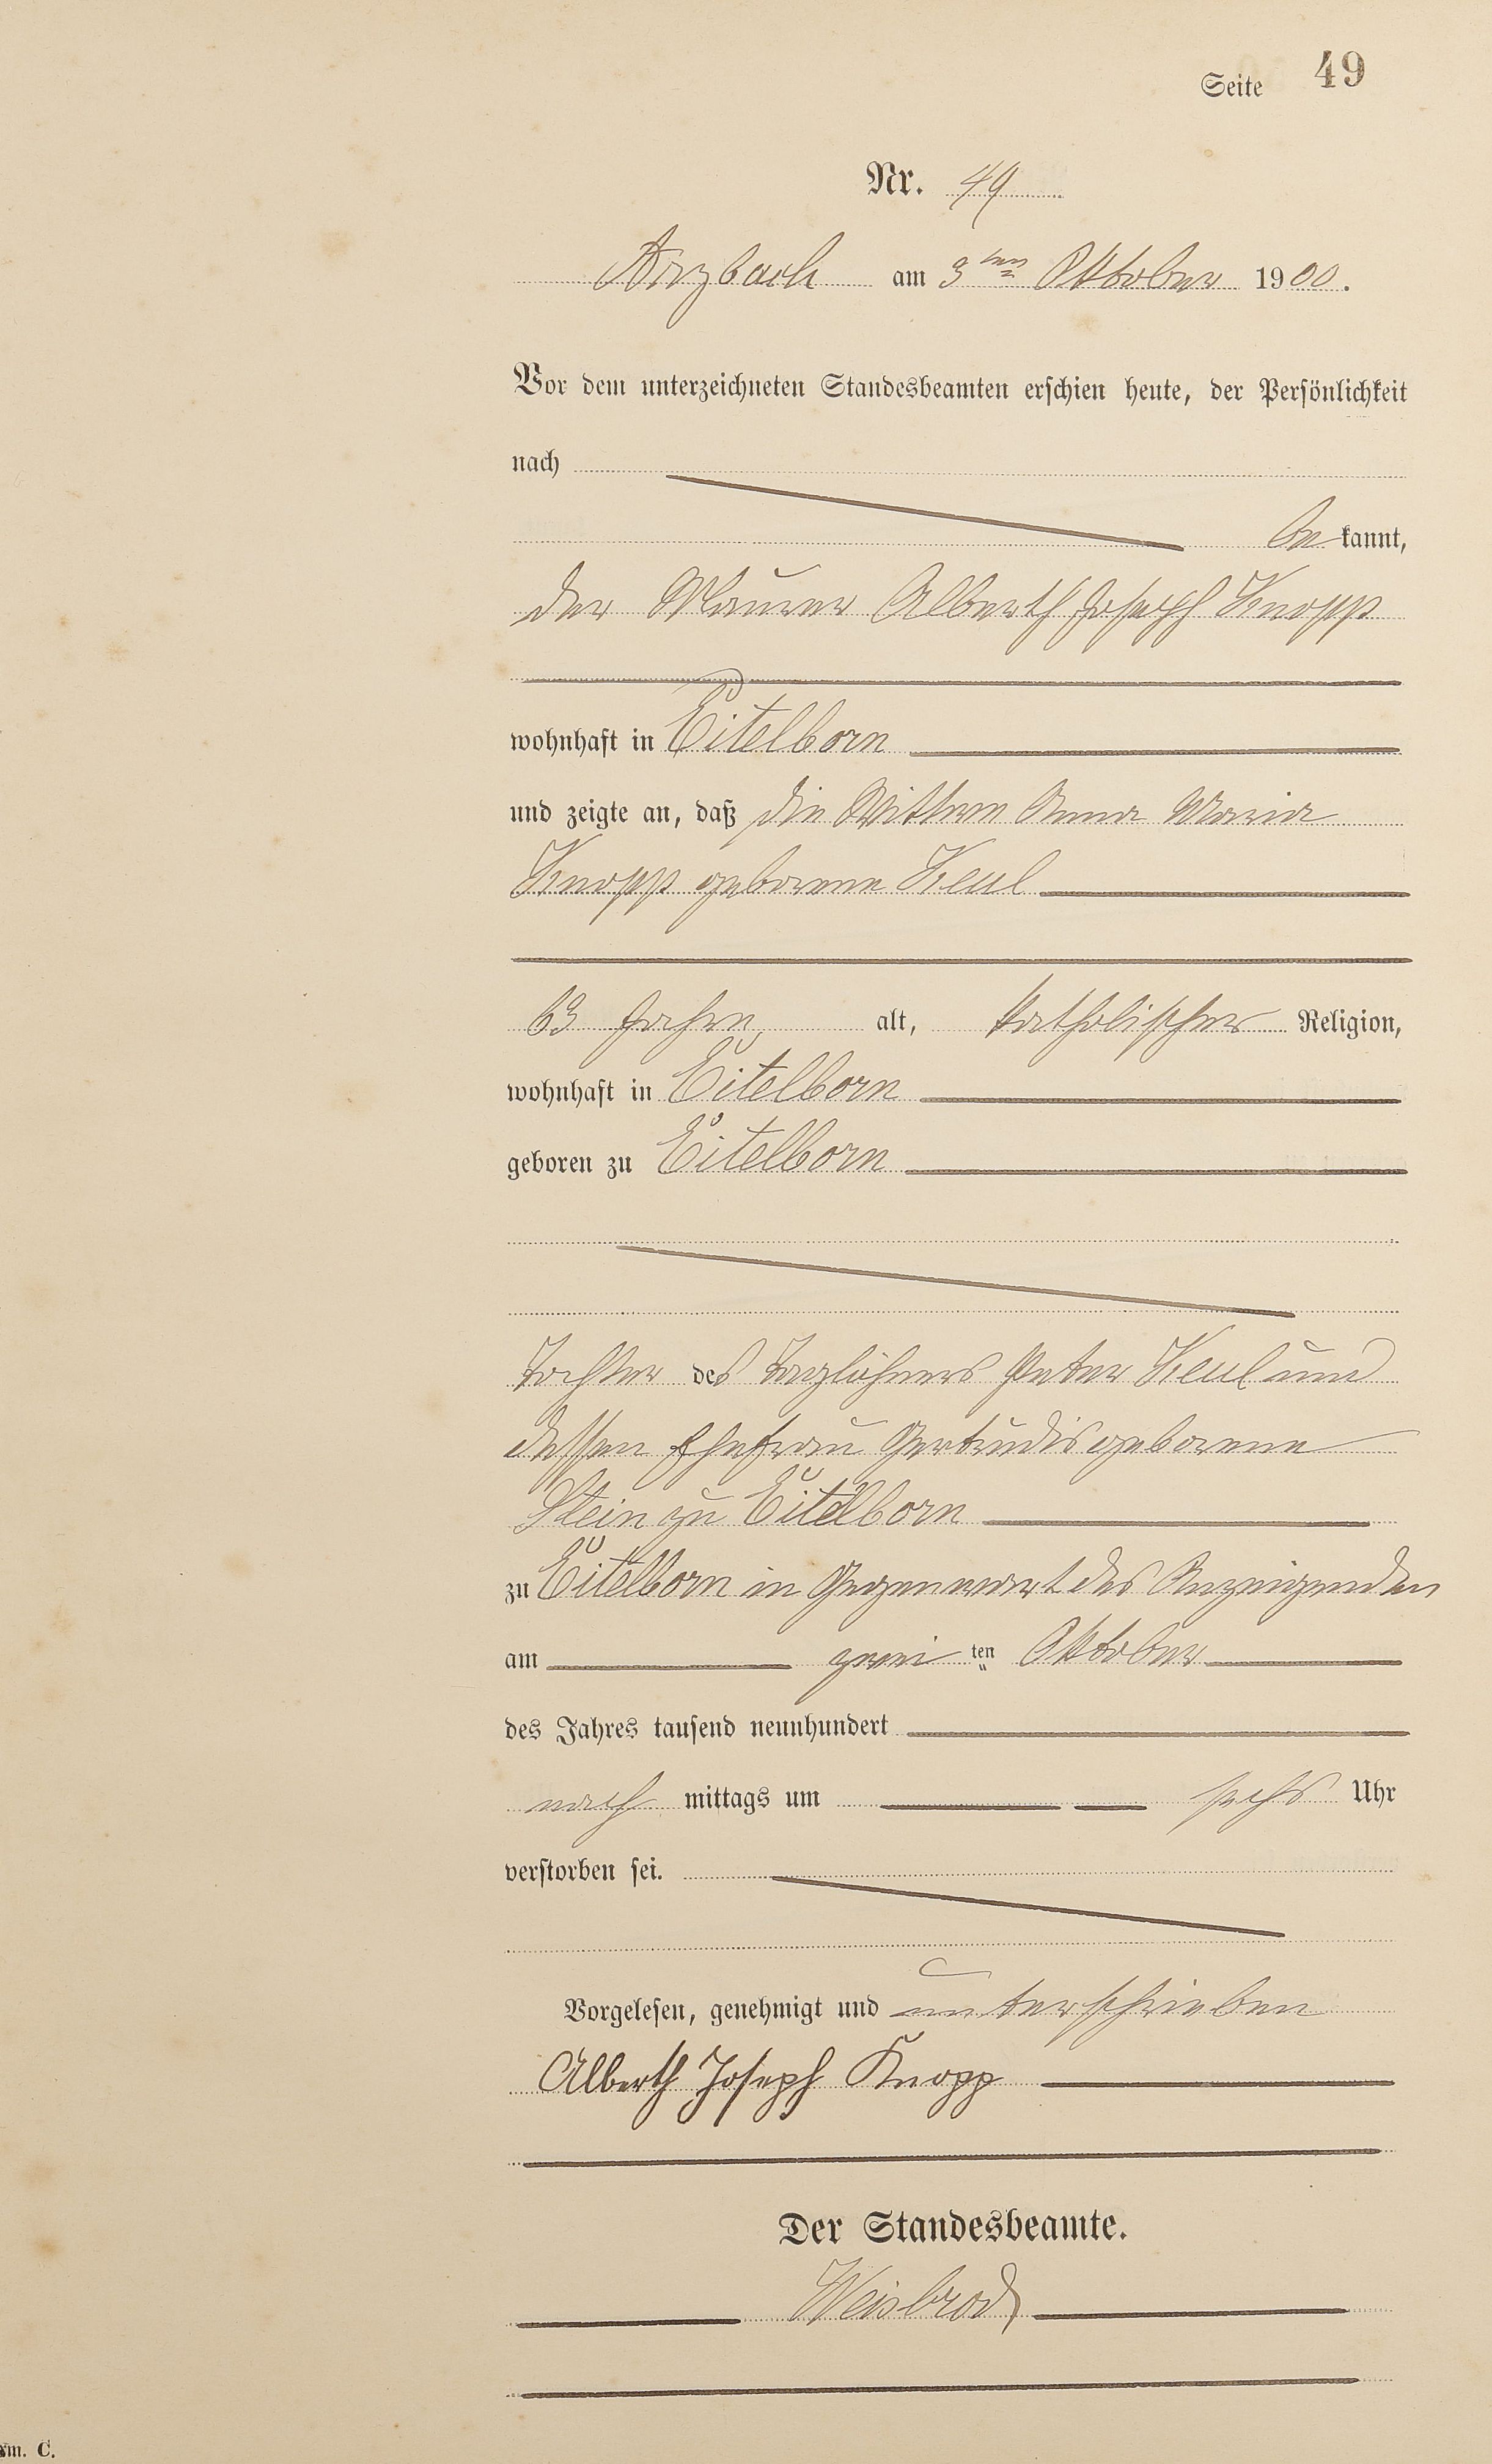 Seite 49
Nr. 49
Arzbach am 3ten Oktober 1900.
Vor dem unterzeichneten Standesbeamten erschien heute, der Persönlichkeit
nach
bekannt,
der Maurer Alberth Joseph Knopp
wohnhaft in Eitelborn
und zeigte an, daß die Wittwe Anna Maria
Knopp geborene Keul
63 Jahre, alt, katholischer Religion,
wohnhaft in Eitelborn
geboren zu Eitelborn
Tochter des Taglöhners Peter Keul und
dessen Ehefrau Gertrudis geborene
Stein zu Eitelborn
zu Eitelborn in Gegenwart des Anzeigenden
am zwei ten Oktober
des Jahres tausend neunhundert
nach mittags um sechs Uhr
verstorben sei.
Vorgelesen, genehmigt und unterschrieben
Alberth Joseph Knopp
Der Standesbeamte.
Weisbrod
rm. C.